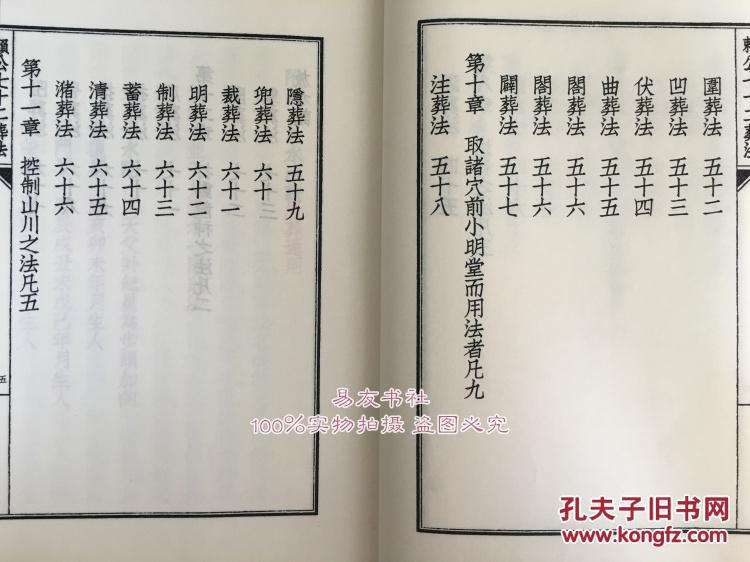 賴公七十二葬法
圍葬法 五十二
凹葬法 五十三
伏葬法 五十四
曲葬法 五十五
閤葬法 五十六
閣葬法 五十六
闢葬法 五十七
第十章 取諸穴前小明堂而用法者凡九
注葬法 五十八
隱葬法 五十九
兜葬法 六十
裁葬法 六十一
明葬法 六十二
制葬法 六十三
蓄葬法 六十四
清葬法 六十五
潴葬法 六十六
第十一章 控制山川之法凡五
賴公七十二葬法
五
易友书社
100%实物拍摄 盗图必究
孔夫子旧书网
www.kongfz.com